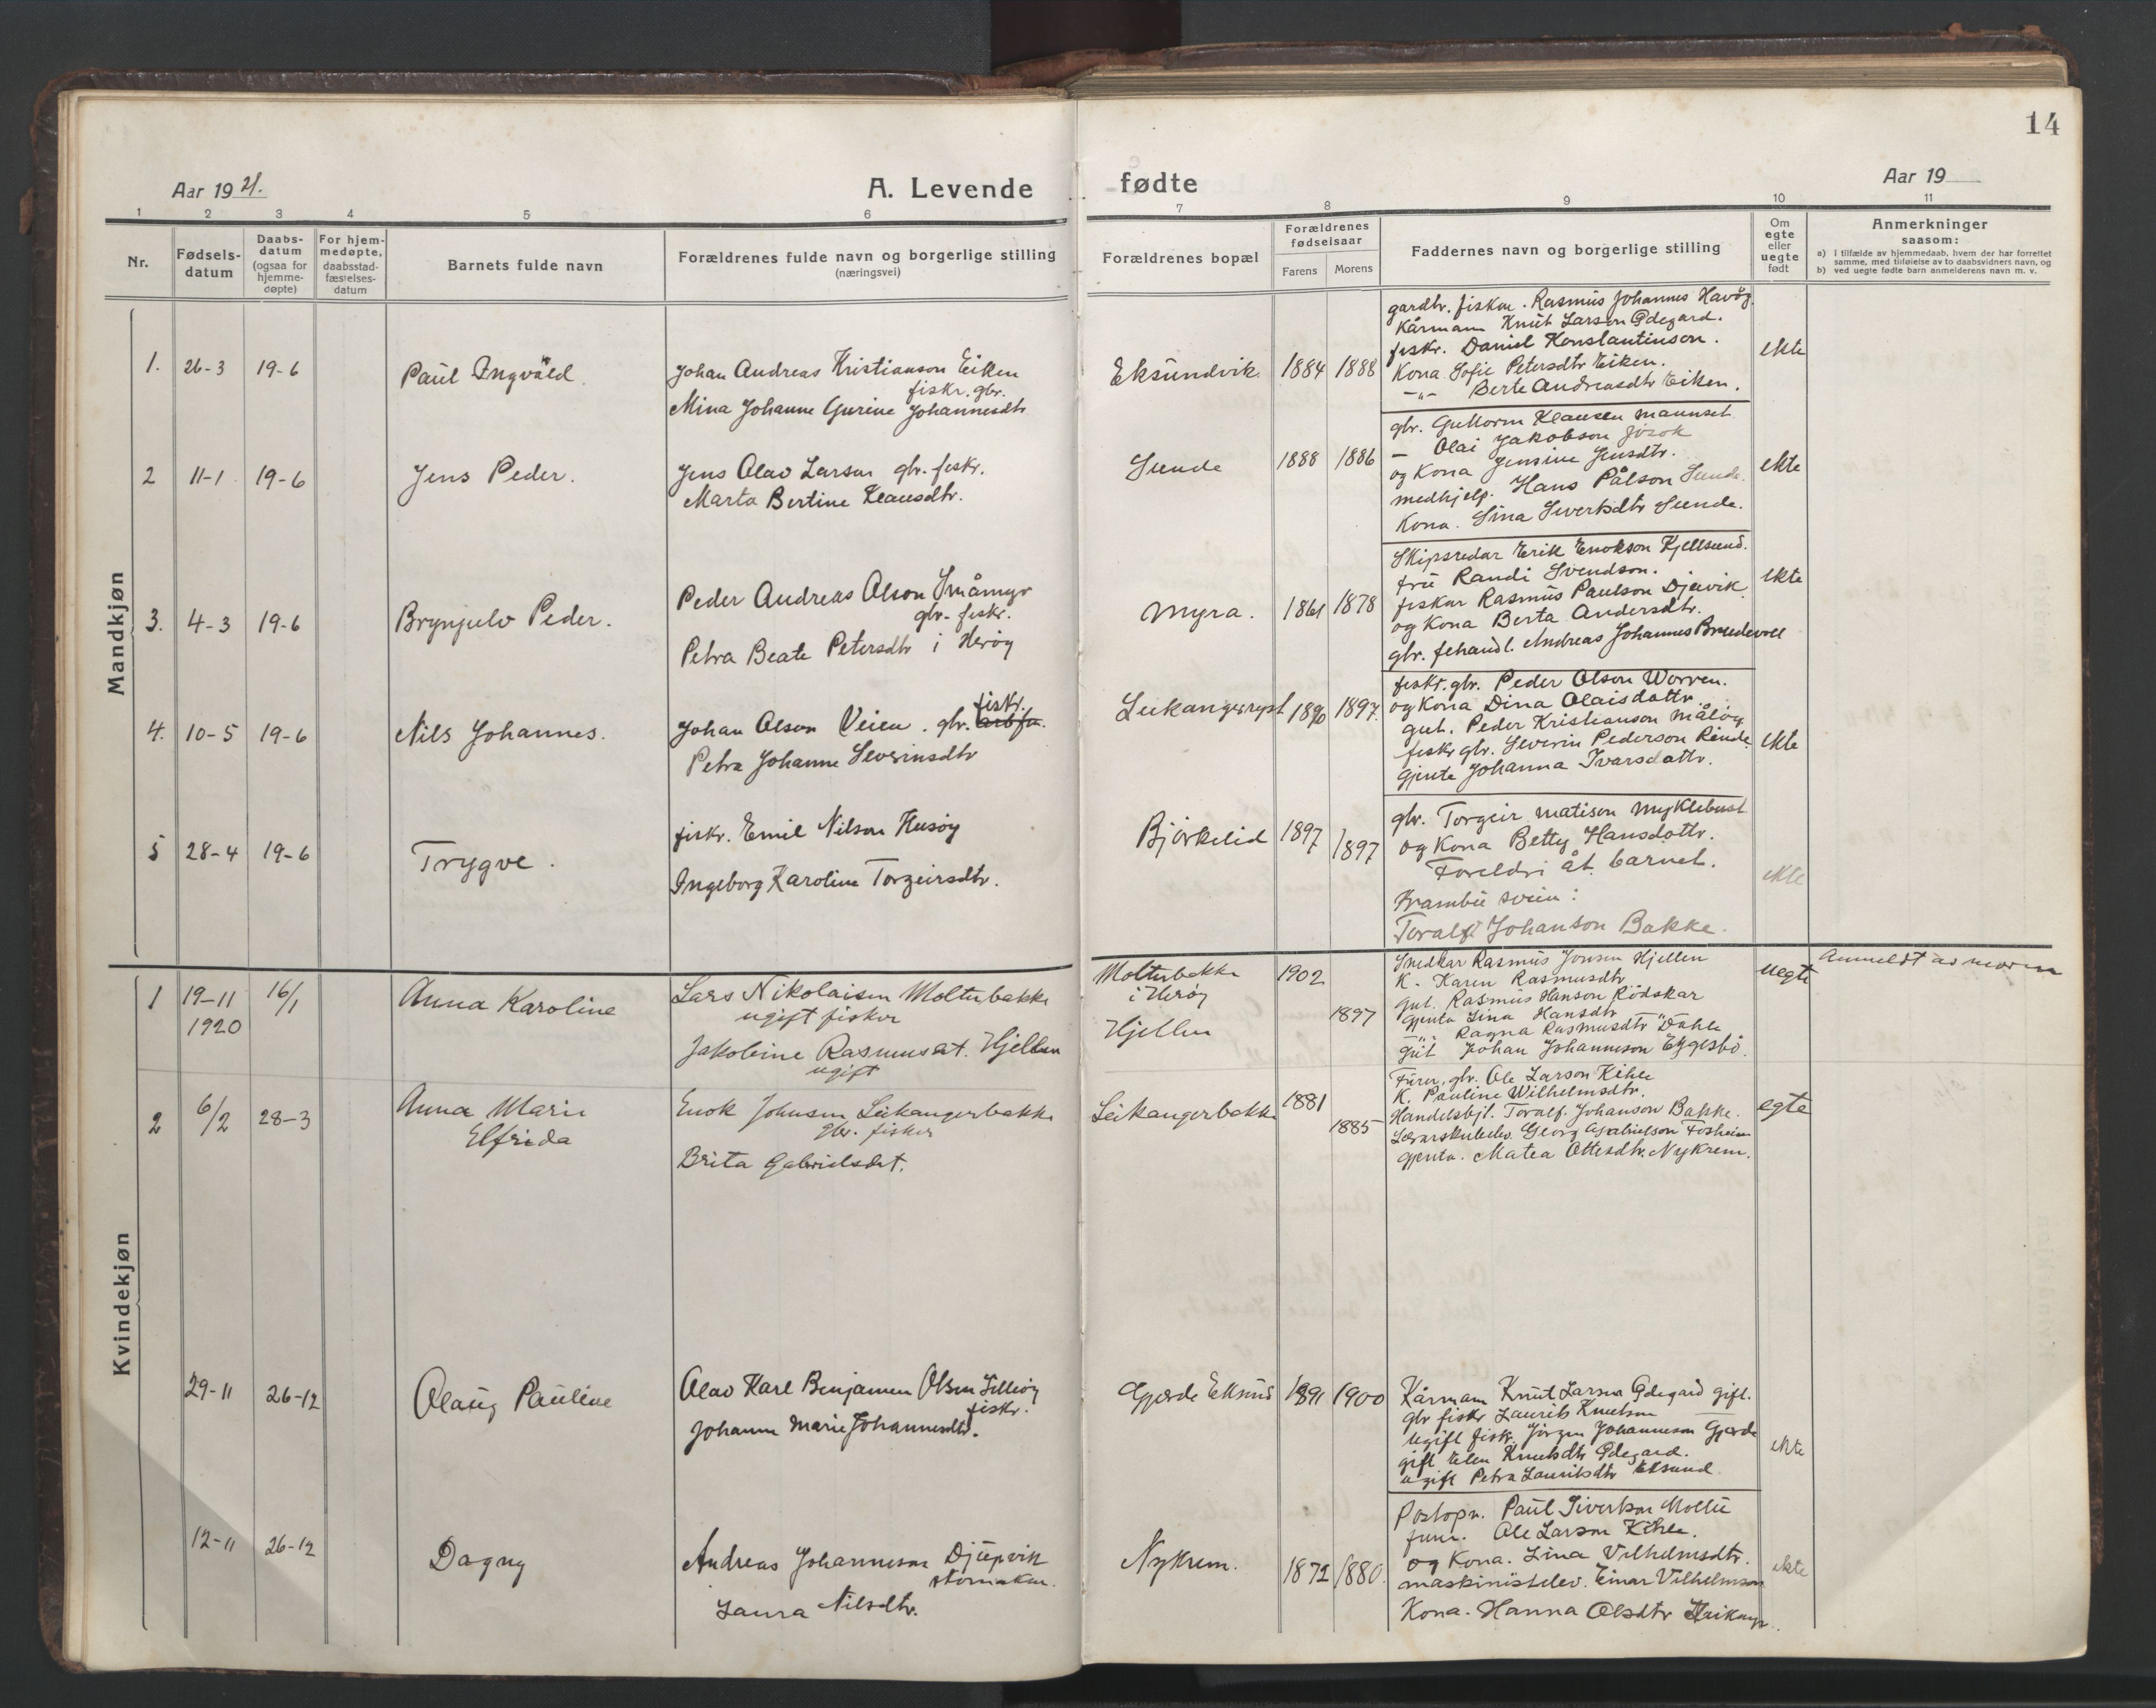 14
Aar 1921.
A. Levende
fødte
Aar 19
1 2 3 4 5 6 7 8 9 10 11
Nr.
Fødsels-
datum
Daabs-
datum
(ogsaa for
hjemme-
døpte)
For hjem-
medøpte,
daabsstad-
fæstelses-
datum
Barnets fulde navn
Forældrenes fulde navn og borgerlige stilling
(næringsvei)
Forældrenes bopæl
Forældrenes
fødselsaar
Farens
Morens
Faddernes navn og borgerlige stilling
Om
egte
eller
uegte
født
Anmerkninger
saasom:
a) i tilfælde av hjemmedaab, hvem der har forrettet
samme, med tilføielse av to daabsvidners navn, og
b) ved uegte fødte barn anmelderens navn m. v.
Mandkjøn
1. 26-3 19-6 Paul Ingvald
Johan Andreas Kristianson Eiken
fiskr. gbr.
Mina Johanne Gurine Johannesdtr
Eksundvik 1884 1888
gardbr. fiskar. Rasmus Johannes Havåg.
Kårmann Knut Larsen Ødegard.
fiskr. Daniel Konstantinson.
Kona Sofie Petersdtr Eiken.
-"- Berte Andreasdtr Eiken.
ekte
2 11-1 19-6 Jens Peder.
Jens Olav Larsen gbr. fiskr.
Marta Bertine Klausdtr.
Sunde 1888 1886
gbr. Guttorm Klausen Mannset
– Olai Jakobson
og Kona Jensine Jensdtr.
medhjelp. Hans Pålson Sunde.
Kona. Sina Sivertsdtr Sunde.
ekte
3. 4-3 19-6 Brynjulv Peder.
Peder Andreas Olson Småmyr
gbr. fiskr.
Petra Beate Petersdtr i Herøy
Myra. 1861 1878
Skipsredar Erik Enokson Kjellsund.
fru Randi Svendson.
fiskar Rasmus Paulson Djuvik
og Kona Berta Andersdtr.
gbr. fehandl. Andreas Johannes Brudevoll
ekte
4. 10-5 19-6 Nils Johannes.
fiskr.
Johan Olson Veien. gbr.
Petra Johanne Severinsdtr
Leikangerryst 1890 1897.
fiskr. gbr. Peder Olson Worren.
og Kona Dina Olaisdottr
gut. Peder Kristianson Måløy
fiskr gbr. Severin Pederson Rinde.
Gjente Johanna Ivarsdattr.
ekte
5 28-4 19-6 Trygve.
fiskr. Emil Nilson Husøy
Ingeborg Karoline Torgeirsdtr.
Bjørkelid 1897 1897
gbr. Torgeir Matison Myklebust
og Kona Betty Hansdottr.
Foreldri åt barnet.
Frambu svein:
Toralf Johanson Bakke.
ekte
Kvindekjøn
1 19-11 16/1 Anna Karoline
1920
Lars Nikolaisen Moltubakke
ugift fisker
Jakobine Rasmusdt. Hjellen
ugift
Moltubakke
i Herøy
Hjellen
1902
1897
Snedkar Rasmus Jonsen Hjellen
K. Karen Rasmusdtr
Gut. Rasmus Hanson Rødskar
Gjenta Lina Hansdtr
-"- Ragna Rasmusdtr Dahle
Gut Johan Johanneson Eggesbø.
uegte
Anmeldt av moren
2 6/2 28-3 Anna Marie
Elfrida
Enok Johnsen Leikangerbakke
gbr. fisker
Brita Gabrielsdt.
Leikangerbakke 1881
1885
Furer, gbr. Ole Larson Kihle
K. Pauline Wilhelmsdtr.
Handelsbtj. Toralf. Johanson Bakke.
Lærarskuleelev. Georg Gabrielson Fosheim
Gjenta. Matea Ottesdtr. Nykrem.
egte
29-11 26-12 Olaug Pauline
Olav Karl Benjamin Olsen Lilløy
fiskr.
Johanne Marie Johannesdtr.
Gjerde Eksund 1891 1900
Kårmann Knut Larsen Ødegaard gift.
gbr fiskr Laurits Knutson
Ugift fiskr. Jørgen Johanneson Gjerde
gift Elen Knutsdtr Ødegard.
ugift Petra Lauritsdtr Eksund
ekte
12-11 26-12 Dagny
Andreas Johannesen Djupvik
Laura Nilsdtr.
Nykrem. 1872 1880.
Postopn. Paul Siverson Moltu
furer. Ole Larson Kihle.
og Kona. Lina Vilhelmsdtr.
maskinistelev. Einar Vilhelmson
Kona. Hanna Olsdtr
ekte